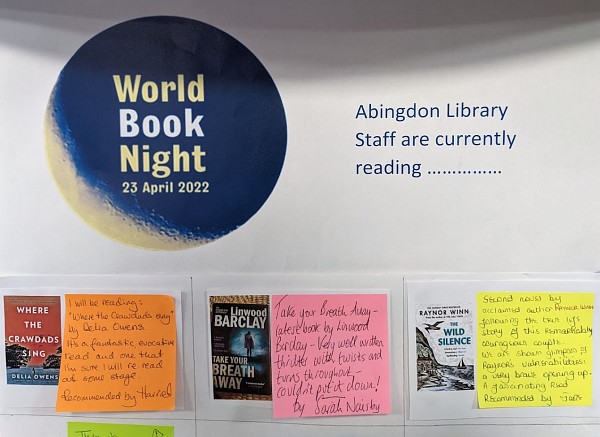 World
Book
Night
23 April 2022
Abingdon Library
Staff are currently
reading ...............
WHERE
THE
CRAWDADS
SING
DELIA OWENS
I will be reading:
"Where the Crawdads Sing"
by Delia Owens
It's a fantastic, evocative
read and one that
I'm sure I will re read
at some stage
Recommended by Harriet
Linwood
BARCLAY
TAKE YOUR
BREATH
AWAY
Take your Breath Away -
latest book by Linwood
Barclay - Very well written
thriller with twists and
turns throughout -
couldn't put it down!
by Sarah
RAYNOR WINN
THE
WILD
SILENCE
Second novel by
acclaimed author Raynor Winn
following the true life
story of this remarkably
courageous couple.
We are shown glimpses of
Raynor's vulnerabilities:
a very brave opening up.
A fascinating Read
Recommended by